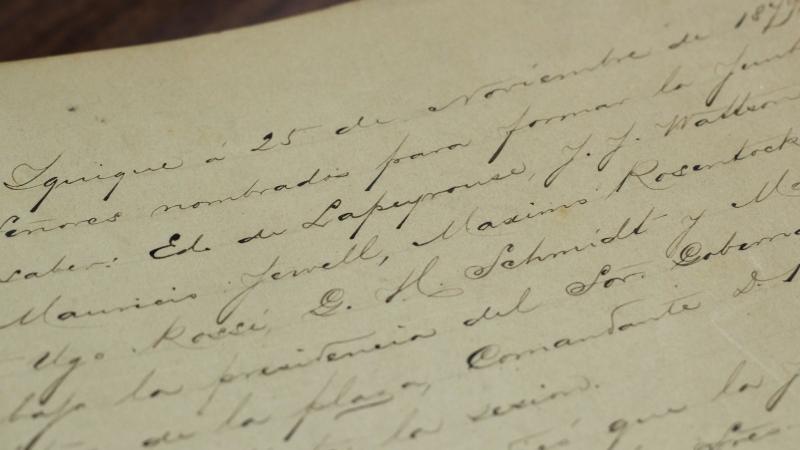 Iquique á 25 de Noviembre de 1879
Señores nombrados para formar la Junt
saber: Ed. de Lapeyrouse, J. J. Wattson
Mauricio Jewell, Maximo Rosenstock
Ugo Rossi, G. H. Schmidt y M
bajo la presidencia del Sor. Goberna
de la plaza, Comandante D.
la sesion.
que la